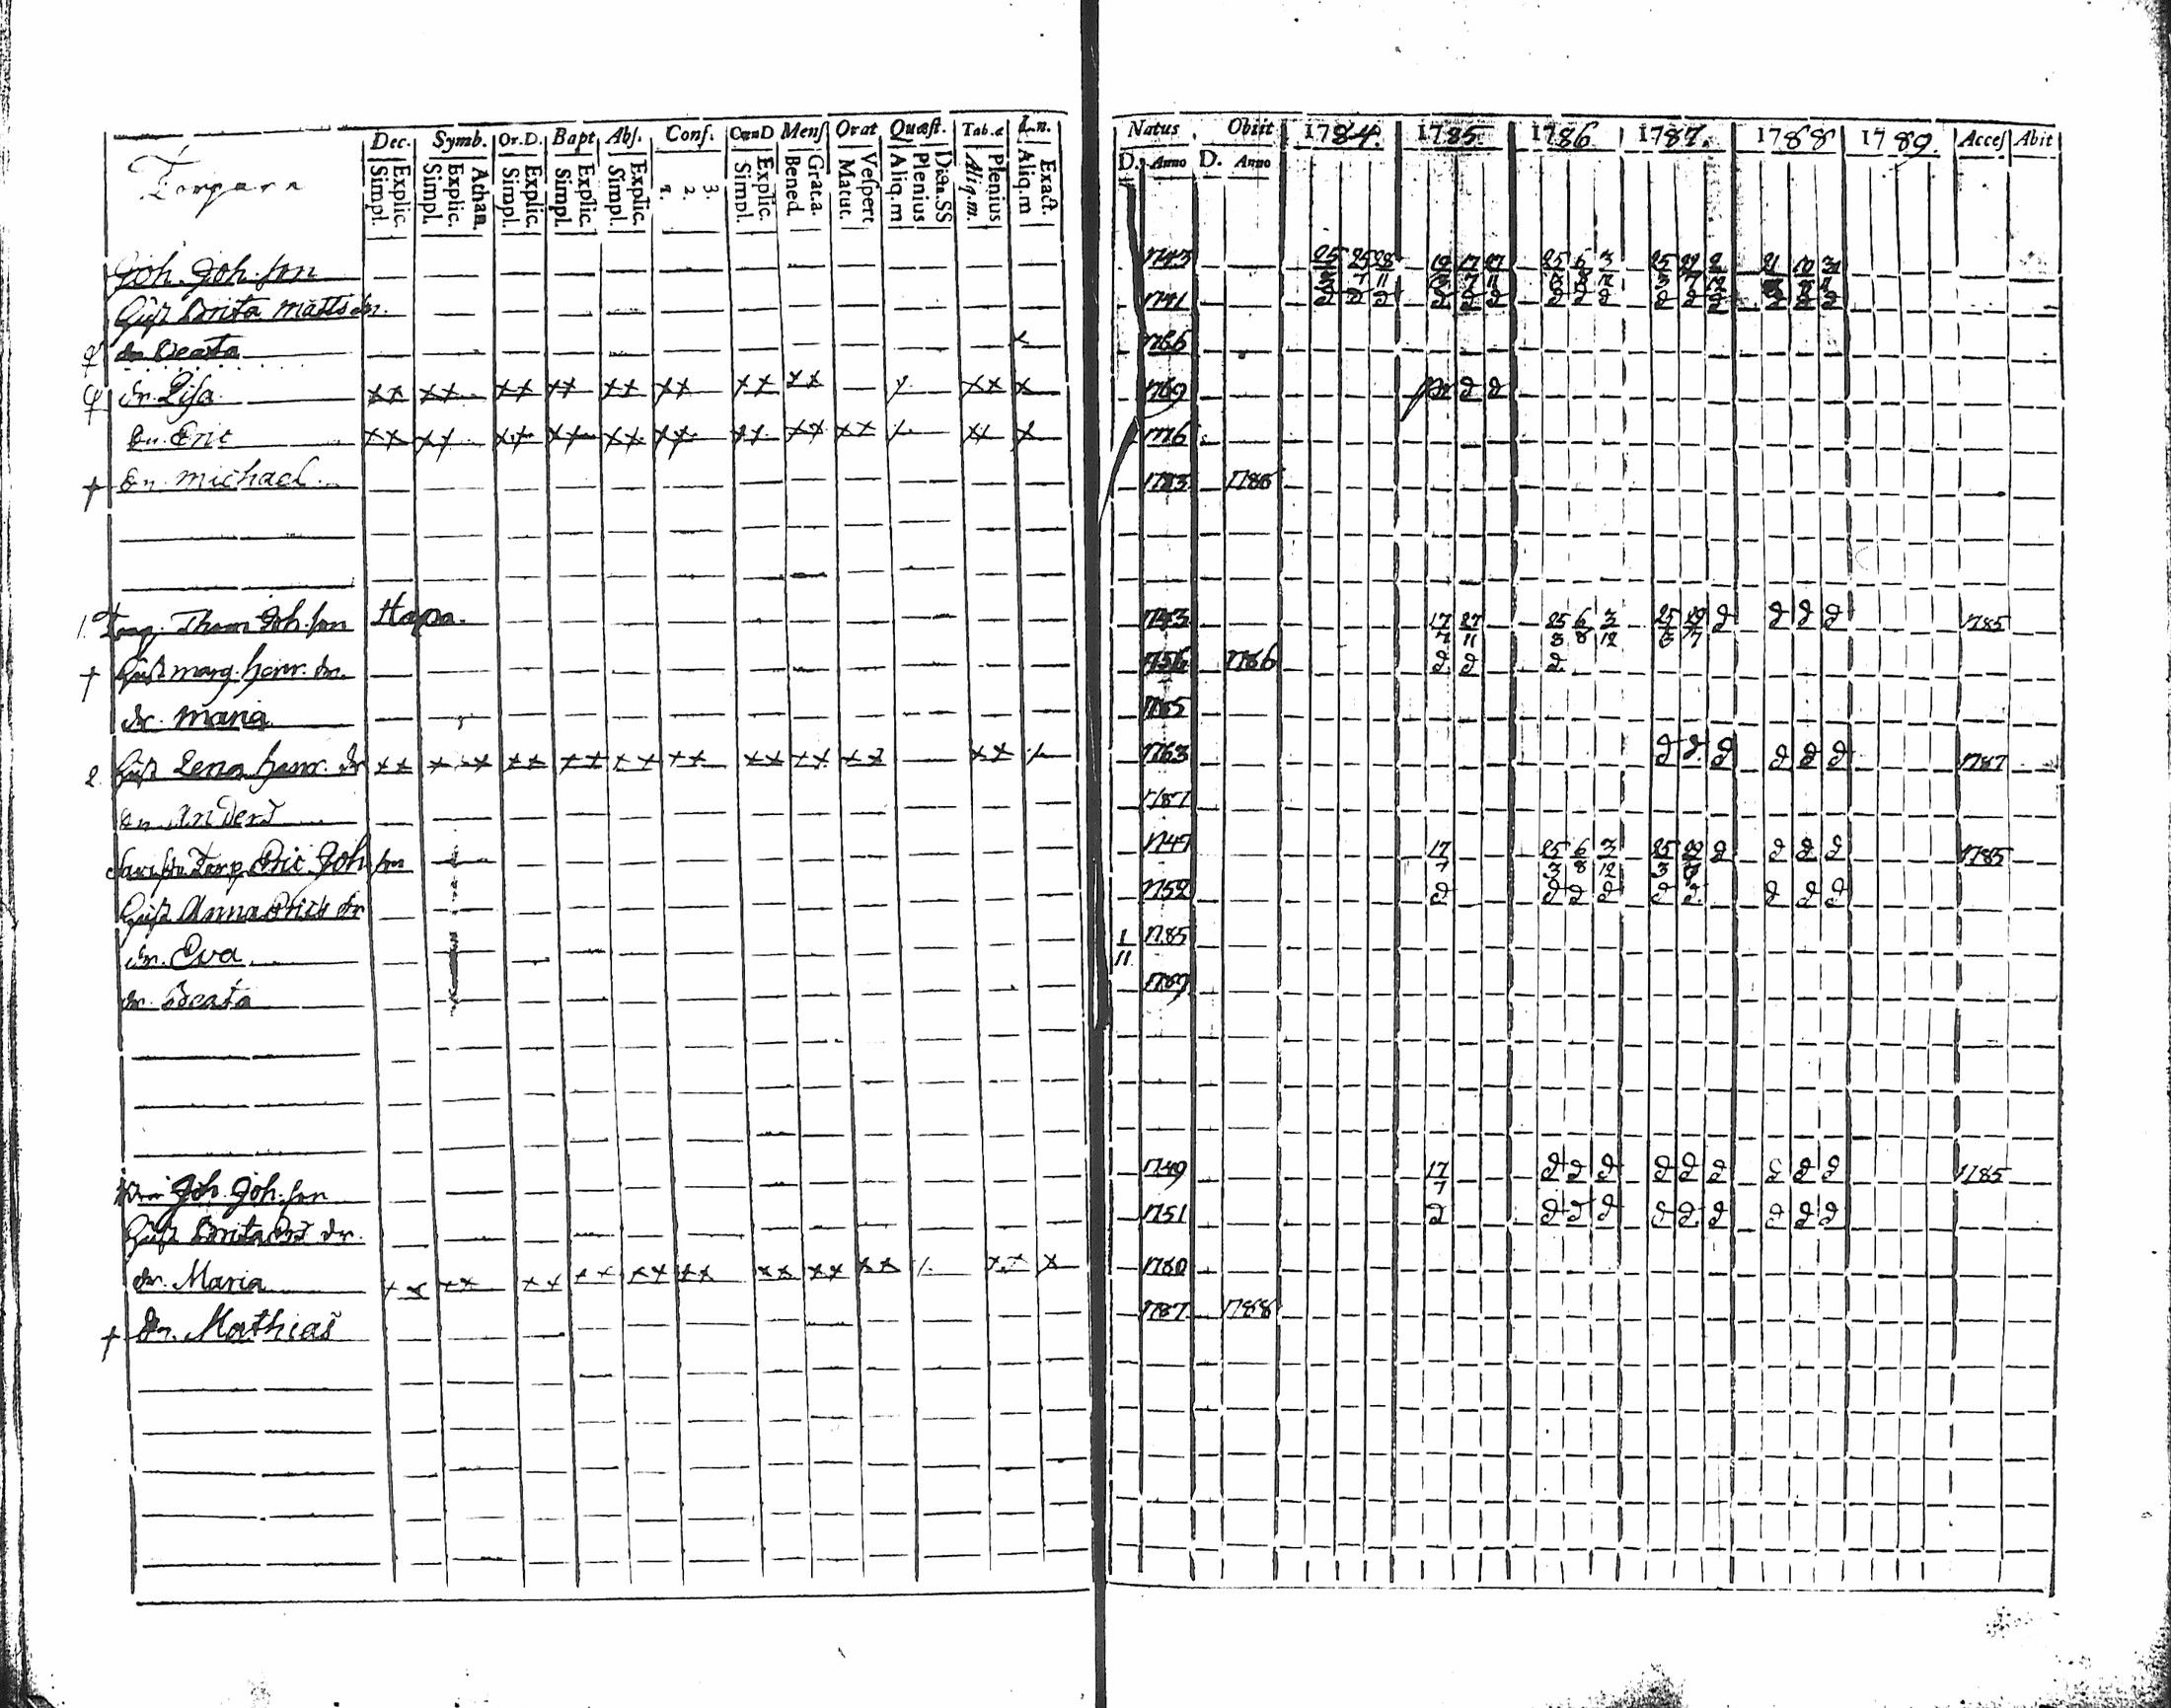 Dec. Symb. Or.D. Bapt Abs. Conf. CœnD Mens Orat Quæst. Tab.æ L.n. Natus Obiit 1784. 1785. 1786 1787. 1788 1789. Acces Abit
Simpl. Explic. Simpl. Explic. Athan. Simpl. Explic. Simpl. Explic. Simpl. Explic. 1. 2. 3. Simpl. Explic. Bened. Grat.a. Matut. Vespert Aliq.m Plenius Dicta.SS Aliq.m. Plenius Aliq.m Exact. D. Anno D. Anno
Torpare
Joh. Joh. son 1743 25 25 28 19 17 27 25 6 3 25 22 2 21 10 31
7 11 7 11 8 12 3 7 12
Hust Brita Matts dr. 1741 2 2 2 2 2 2 2 2 2 2 2 2 2 2 2
dr Beata x 1766
dr. Lisa xx xx xx xx xx xx xx xx xx x 1769 2 2
Sn. Eric xx xx xx xx xx xx xx xx xx xx x 1776
† Sn. Michael 1783 1786
1. Torp. Thom Joh. son Hapa. 1743 17 27 25 6 3 25 22 2 2 2 2 1785
7 11 3 8 12 3 7
† Hust Marg. Henr. dr. 1756 1786 2 2 2
dr. Maria 1765
2. Hust Lena Henr. dr xx xx xx xx xx xx xx xx xx xx 1763 2 2 2 2 2 2 1787
Sn Anders 1787
Torp. Eric Joh. son 1745 17 25 6 3 25 22 2 2 2 2 1785
7 3 8 12 3
Hust Anna Erics dr 1752 2 2 2 2 2 2 2 2 2
dr. Eva 1 1785
11
dr. Beata 1789
Joh. Joh. son 1749 17 2 2 2 2 2 2 2 2 2 1785
7
Hust Brita dr. 1751 2 2 2 2 2 2 2 2 2 2
dr. Maria xx xx xx xx xx xx xx xx xx xx x 1780
† Sn. Mathias 1787 1788